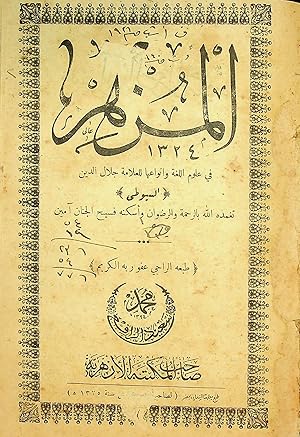 المزهر
١٣٢٤
في علوم اللغة وانواعها للعلامة جلال الدين
﴿ السيوطى ﴾
تغمده الله بالرحمة والرضوان وأسكنه فسيح الجنان آمين
﴿ طبعه الراجي عفو ربه الكريم ﴾
محمد
سعيد الرافعي
صاحب المكتبة الازهرية
سنة ١٣٢٥